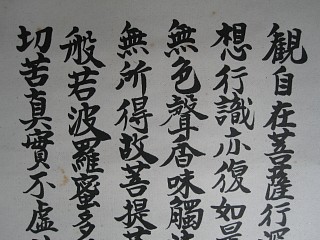 観自在菩薩行深
想行識亦復如是
無色聲香味觸法
無所得故菩提薩
般若波羅蜜多
切苦真實不虚